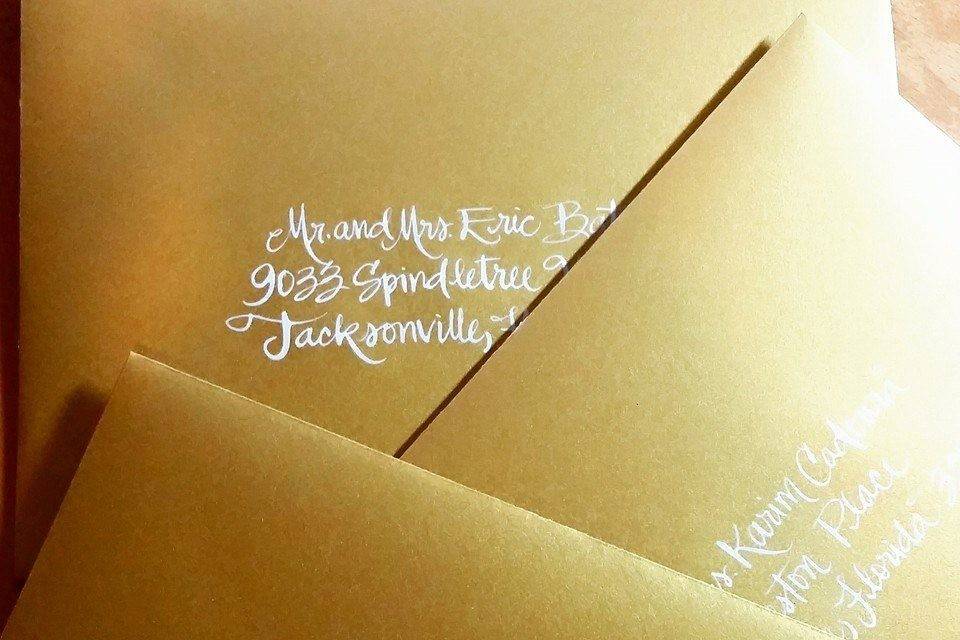 Mr. and Mrs. Eric
9033 Spindletree
Jacksonville,
Karim
Place
Florida